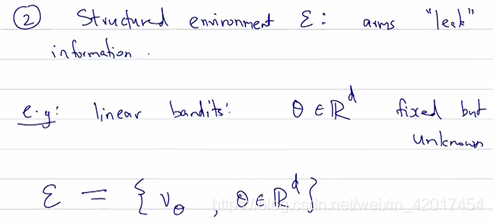 ② Structured environment ℰ: arms "leak"
information.
e.g: linear bandits: θ ∈ ℝᵈ fixed but
unknown
ℰ = { ν_θ , θ ∈ ℝᵈ }
https://blog.csdn.net/weixin_42017454